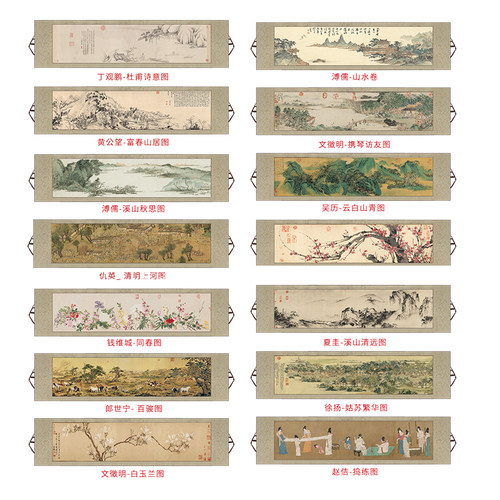 丁观鹏-杜甫诗意图
溥儒-山水卷
黄公望-富春山居图
文徵明-携琴访友图
溥儒-溪山秋思图
吴历-云白山青图
仇英_ 清明上河图
钱维城-同春图
夏圭-溪山清远图
郎世宁- 百骏图
徐扬-姑苏繁华图
文徵明-白玉兰图
赵佶-捣练图